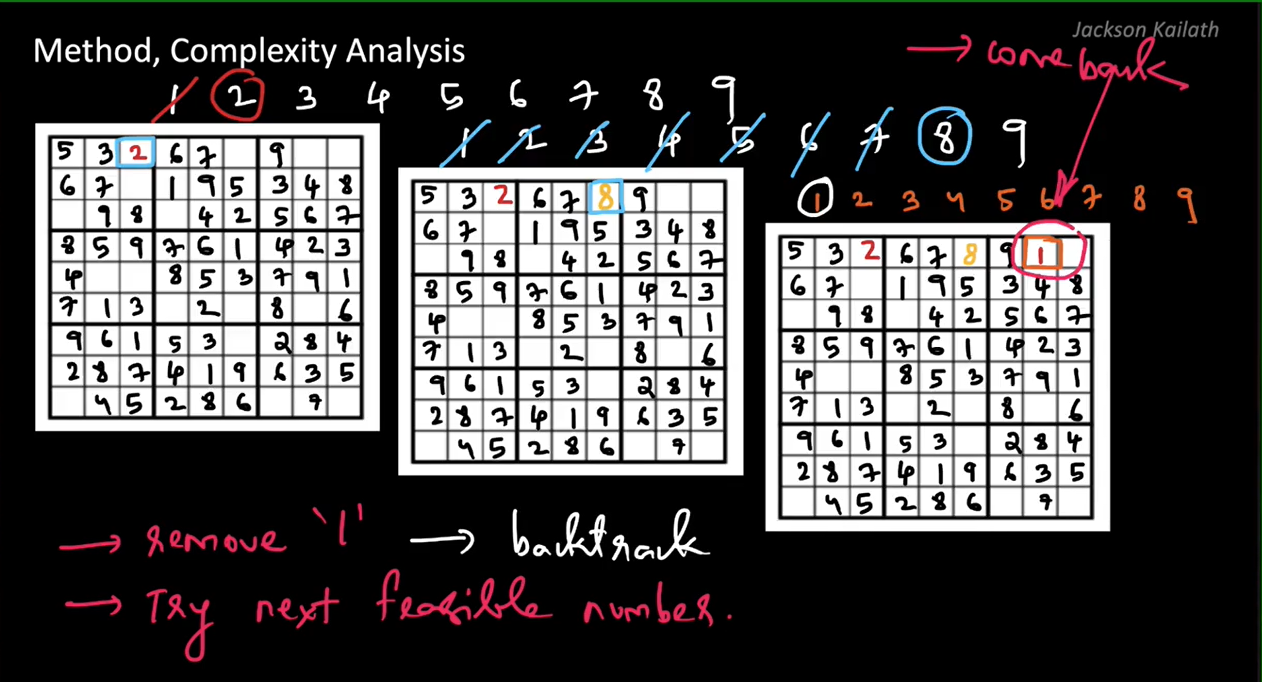 Jackson Kailath
Method, Complexity Analysis
→ come back
1 2 3 4 5 6 7 8 9
1 2 3 4 5 6 7 8 9
1 2 3 4 5 6 7 8 9
5 3 2 6 7 9
6 7 1 9 5 3 4 8
9 8 4 2 5 6 7
8 5 9 7 6 1 4 2 3
4 8 5 3 7 9 1
7 1 3 2 8 6
9 6 1 5 3 2 8 4
2 8 7 4 1 9 6 3 5
4 5 2 8 6 7
5 3 2 6 7 8 9
6 7 1 9 5 3 4 8
9 8 4 2 5 6 7
8 5 9 7 6 1 4 2 3
4 8 5 3 7 9 1
7 1 3 2 8 6
9 6 1 5 3 2 8 4
2 8 7 4 1 9 6 3 5
4 5 2 8 6 7
5 3 2 6 7 8 9 1
6 7 1 9 5 3 4 8
9 8 4 2 5 6 7
8 5 9 7 6 1 4 2 3
4 8 5 3 7 9 1
7 1 3 2 8 6
9 6 1 5 3 2 8 4
2 8 7 4 1 9 6 3 5
4 5 2 8 6 7
→ remove '1' → backtrack
→ Try next feasible number.